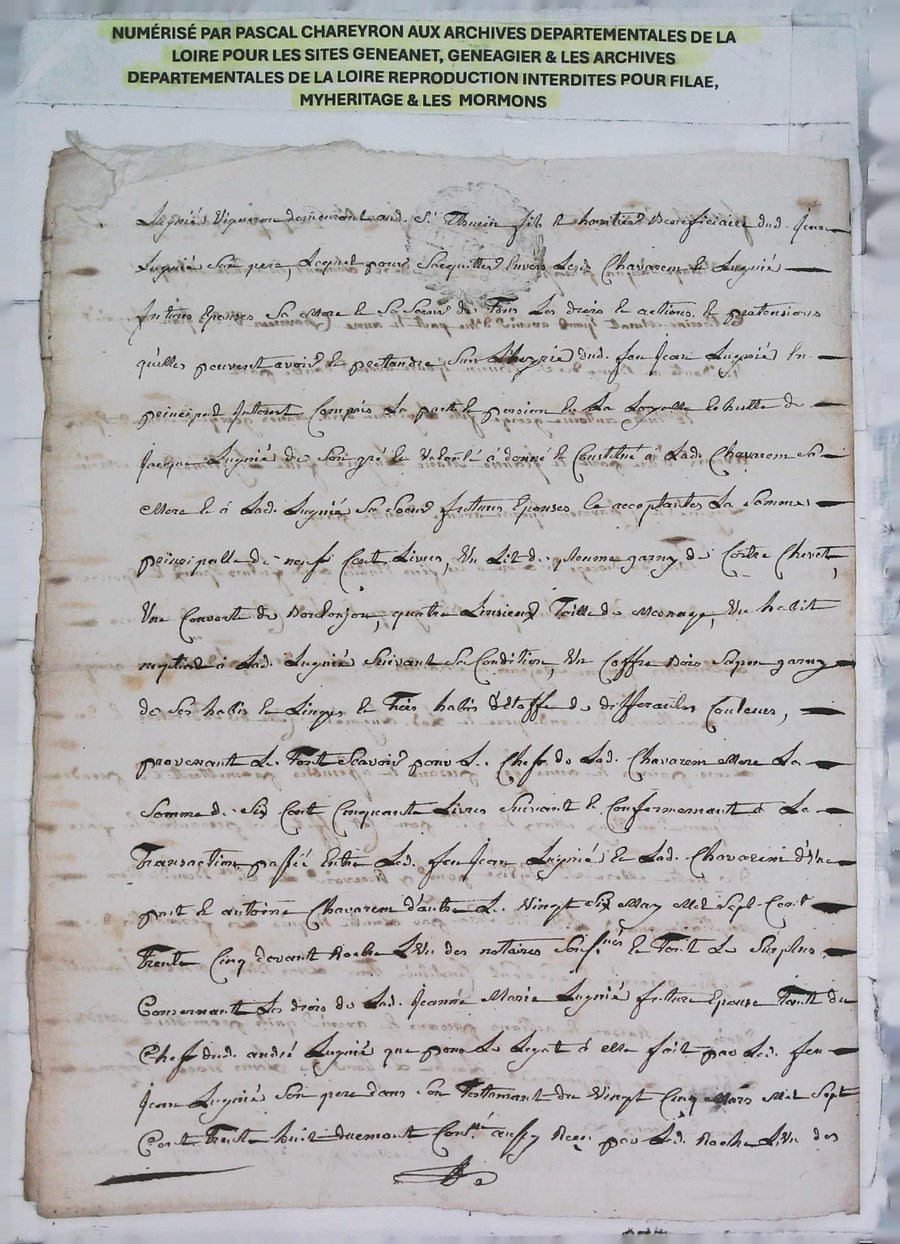 NUMÉRISÉ PAR PASCAL CHAREYRON AUX ARCHIVES DEPARTEMENTALES DE LA
LOIRE POUR LES SITES GENEANET, GENEAGIER & LES ARCHIVES
DEPARTEMENTALES DE LA LOIRE REPRODUCTION INTERDITES POUR FILAE,
MYHERITAGE & LES MORMONS
Lugnié Vigneron demeurant aud. St fils & heritier Beneficiaire dud. Jean
Lugnié son pere, Lequel pour Sacquitter Envers Lesd. Chavarem & Lugnié
futures Epouses Sa Mere & Sa Soeur de Tous Les droits & actions & pretensions
qu'elles peuvent avoir & pretandre Sur dud. feu Jean Lugnié En
principal Interest Compris La part & portion de La
Jacque Lugnié de Son gré & Volonté a donné & Constitué à Lad. Chavarem Sa
Mere & à Lad. Lugnié Sa Soeur futures Epouses & acceptantes La Somme
principalle de neuf Cent Livres, Un Lit de plume garny de Coitre Chevet,
Une Couverte de quatre Linsieux Toille de Mesnage, Un habit
nuptial à Lad. Lugnié Suivant Sa Condition, Un Coffre Bois Sapin garny
de Ses habits & Linges & Trois habits d'Etoffe de differantes Couleurs,
provenant Le Tout Scavoir pour Le Cheff de Lad. Chavarem Mere La
Somme de Six Cent Cinquante Livres Suivant & Conformemant à La
Transaction passée Entre Led. feu Jean Lugnié & Lad. Chavarem d'Une
part & antoine Chavarem d'autre Le Vingt Six May Mil Sept Cent
Trente Cinq devant Roche L'Un des notaires & Tout Le Surplus
Consernant Les droits de Lad. Jeanne Marie Lugnié future Epouse Tant du
Cheff dud. andré Lugnié que pour Le Legat à elle fait par Led. feu
Jean Lugnié Son pere dans Son Testamant du Vingt Cinq Mars Mil Sept
Cent Trente huit duemant Conllé aussy Reçu par Led. Roche L'Un des